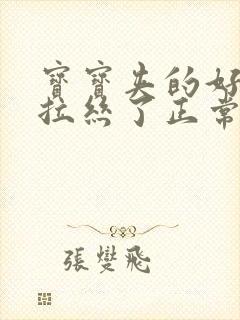 寶寶夹的好
拉絲了正常
張燮飛